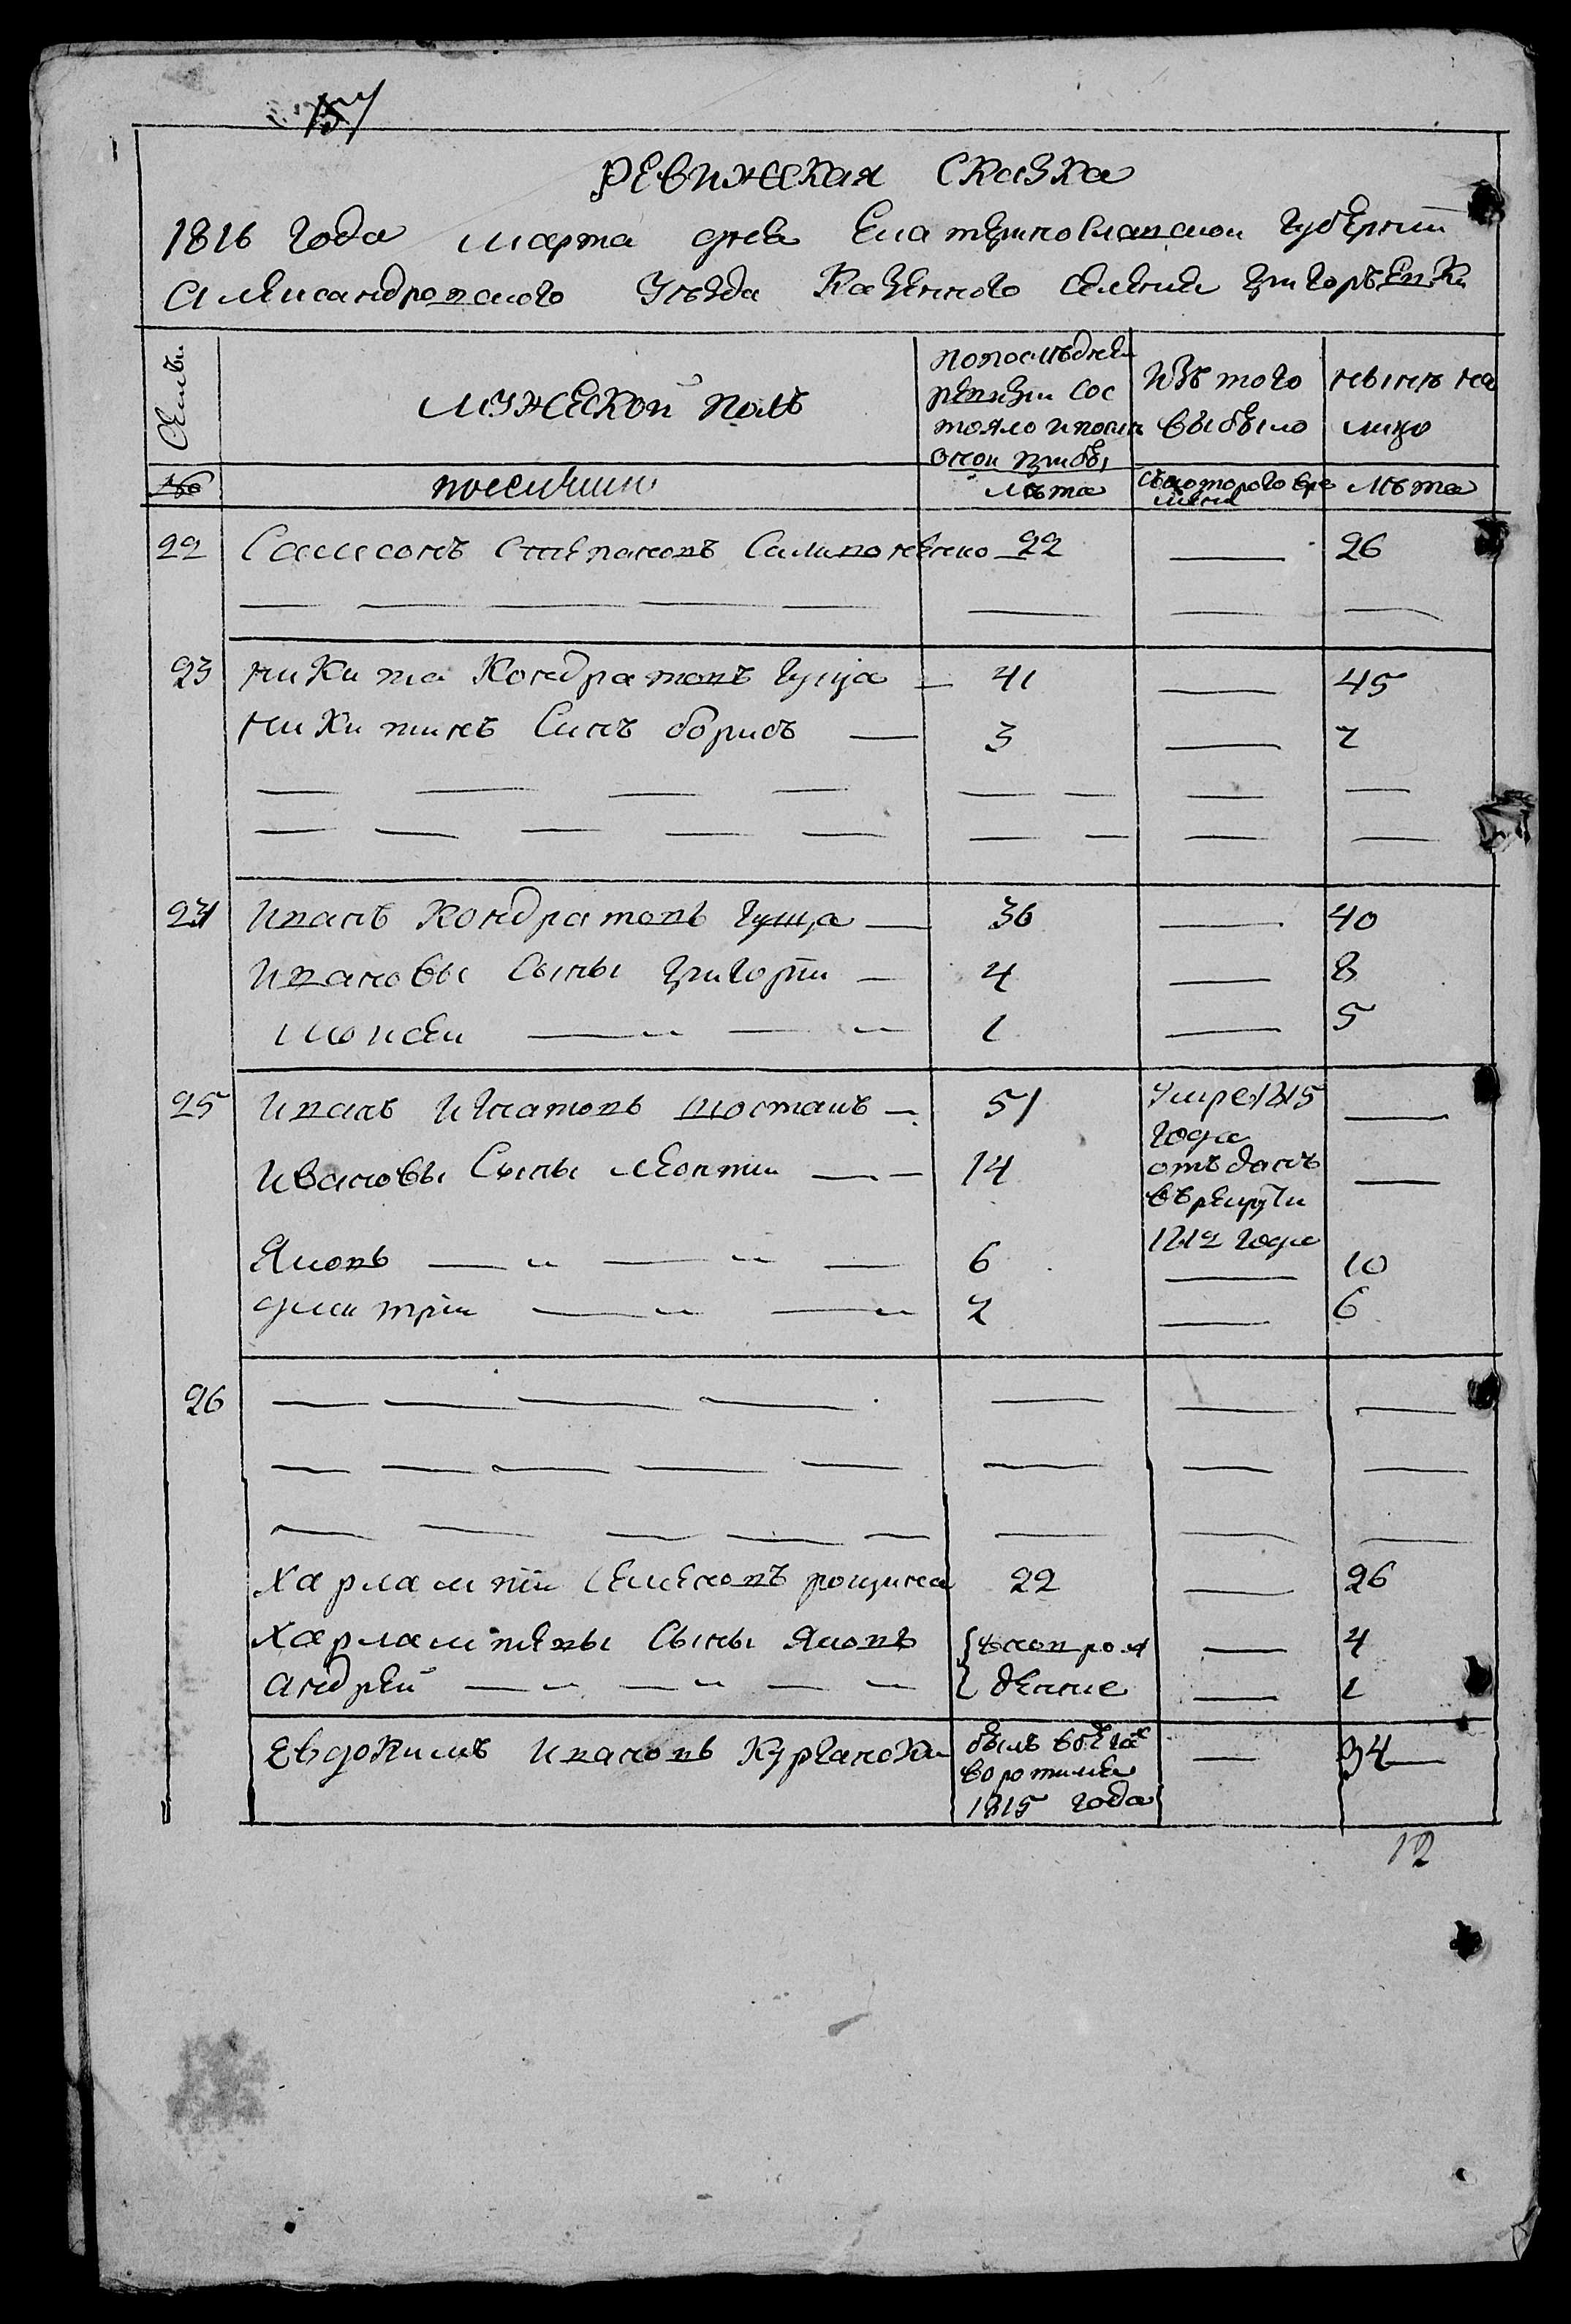 157
Ревижская сказка
1816 года марта дня Екатеринославской губернии
Александровского уѣзда казенного селения Григорьевки
Семьи
мужеской полъ
попоследней
ревизии сос
тояло и после
оной прибы
изъ того
выбыло
нынѣ на
лицо
№
поселяни
лѣта
съ которого вре
мени
лѣта
22 Самсонъ Степановъ 22 — 26
23 Никита Кондратовъ Гуща — 41 — 45
Никитинъ Синъ борисъ — 3 — 7
24 Иванъ Кондратовъ Гуща — 36 — 40
Ивановы Сыны Григории — 4 — 8
Моисеи — „ — „ 1 — 5
25 Иванъ Игнатовъ — 51 Умре 1815 —
года
Ивановы Сыны Леонти — — 14 отъданъ —
въ рекрути
1812 года
Яковъ — „ — „ — 6 — 10
дмитрiи — „ — „ 2 — 6
26
Харлампiи Семеновъ рощина 22 — 26
Харлампiевы Сыны Яковъ { вновро — 4
Андрей — „ — „ — „ { денние — 1
Евдокимъ Ивановъ Кургански былъ вбега — 34
воротился
1815 года
12